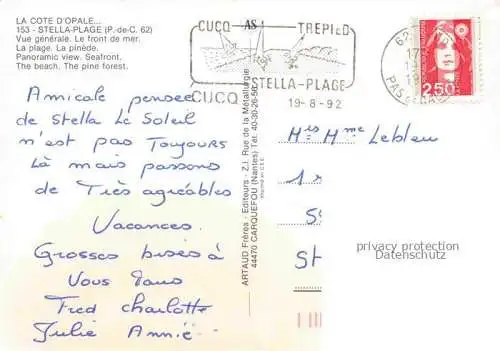 LA COTE D'OPALE...
153 - STELLA-PLAGE (P.-de-C. 62)
Vue générale. Le front de mer.
La plage. La pinède.
Panoramic view. Seafront.
The beach. The pine forest.
Amicale pensee
de Stella Le Soleil
n'est pas Toujours
Là mais passons
de Très agréables
Vacances.
Grosses bises à
Vous Tous
Fred charlotte
Julie Annie
ARTAUD Frères - Editeurs - Z.I. Rue de la Métallurgie
44470 CARQUEFOU (Nantes) Tél. 40-30-26-50
CUCQ AS TREPIED
STELLA-PLAGE
CUCQ 19-8-92
62
PAS DE CALAIS
2,50
Mrs Mme Lebleu
1
S
St
privacy protection
Datenschutz